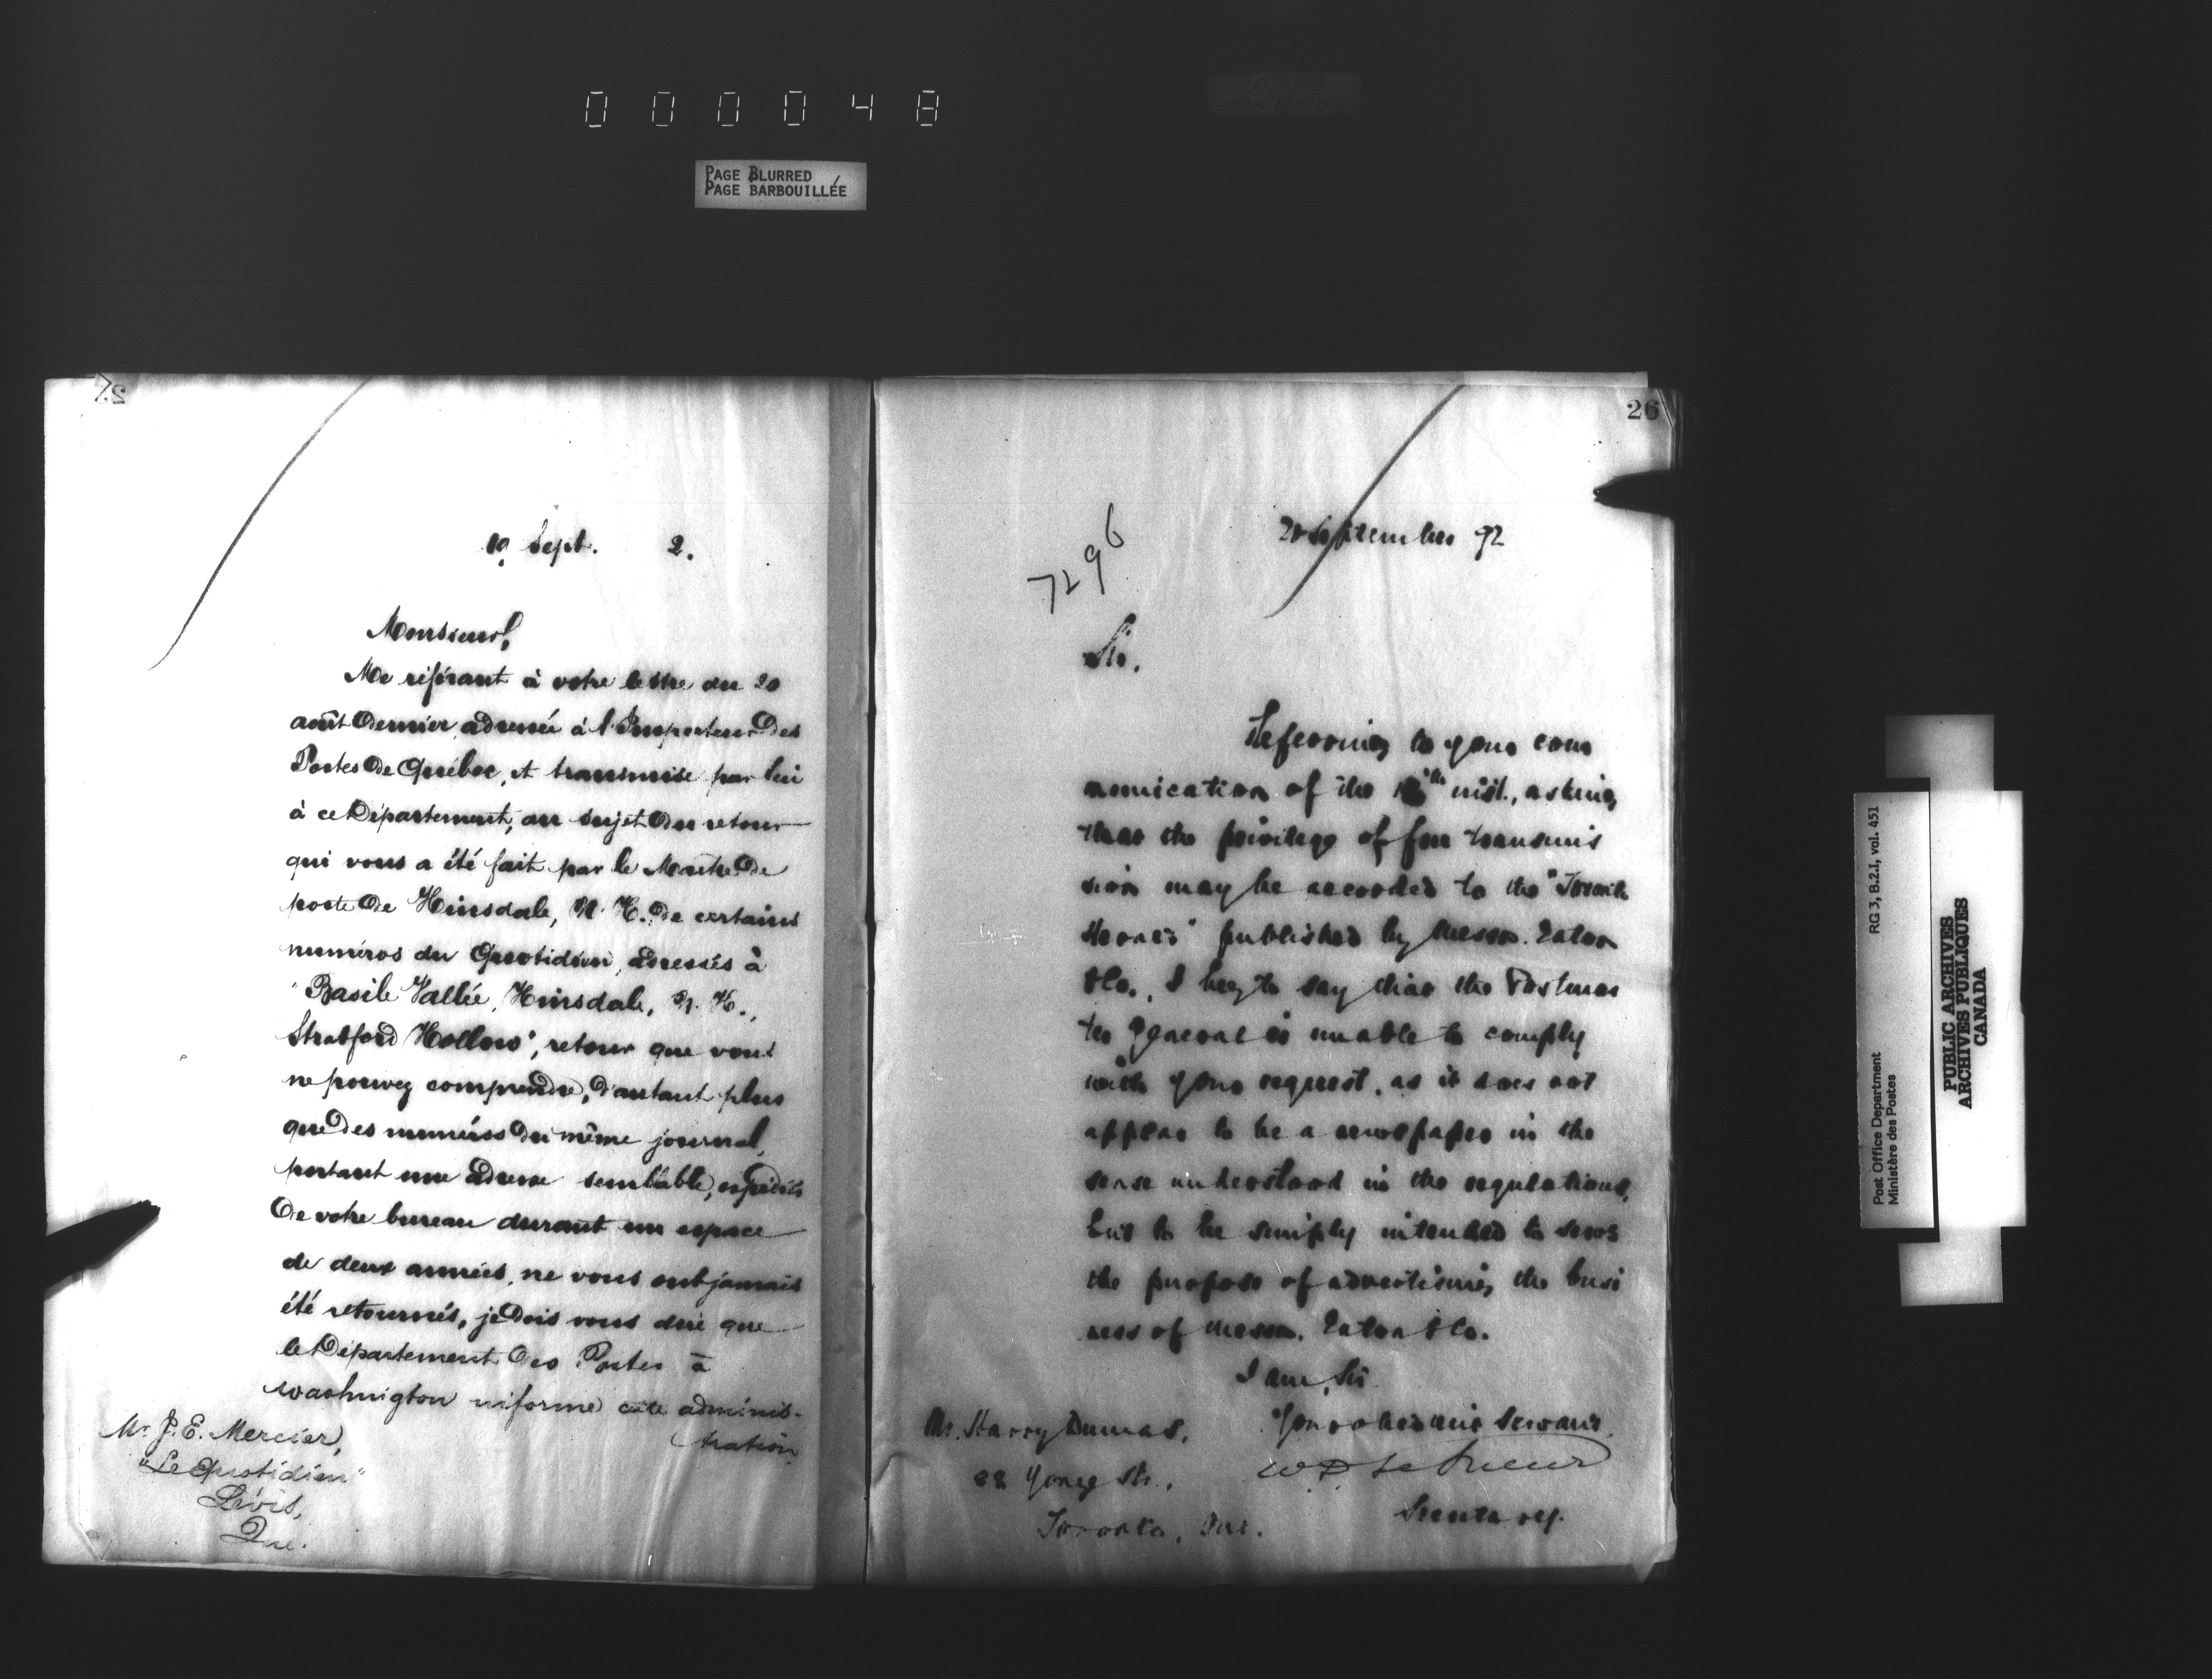 000048
PAGE BLURRED
PAGE BARBOUILLÉE
19 Sept. 2.
Monsieur,
Me référant à votre lettre du 20
août dernier, adressée à l'Inspecteur des
Postes de Québec, et transmise par lui
à ce Département, au sujet du retour
qui vous a été fait par le Maître de
poste de Hinsdale, N. H. de certains
numéros du Quotidien, adressés à
"Basile Vallée, Hinsdale, N. H.,
Stratford Hollow", retour que vous
ne pouvez comprendre, d'autant plus
que des numéros du même journal,
portant une adresse semblable, expédiés
de votre bureau durant un espace
de deux années, ne vous ont jamais
été retournés, je dois vous dire que
le Département des Postes à
Washington informe cette adminis-
tration
Mr. J. E. Mercier,
"Le Quotidien"
Lévis,
Que.
26
7296
September 92
Sir.
Referring to your com
munication of the inst., asking
that the privilege of free transmis
sion may be accorded to the "
" published by Messrs. Eaton
& Co., I beg to say that the Postmas
ter General is unable to comply
with your request, as it does not
appear to be a newspaper in the
sense understood in the regulations,
but to be simply intended to serve
the purpose of advertising the busi
ness of Messrs. Eaton & Co.
I am, Sir
Your obedient Servant,
W D LeSueur
Secretary.
Mr. Harry Dumas,
88 Yonge St.,
Toronto, Ont.
Post Office Department
Ministère des Postes
RG 3, B.2.I, vol. 451
PUBLIC ARCHIVES
ARCHIVES PUBLIQUES
CANADA